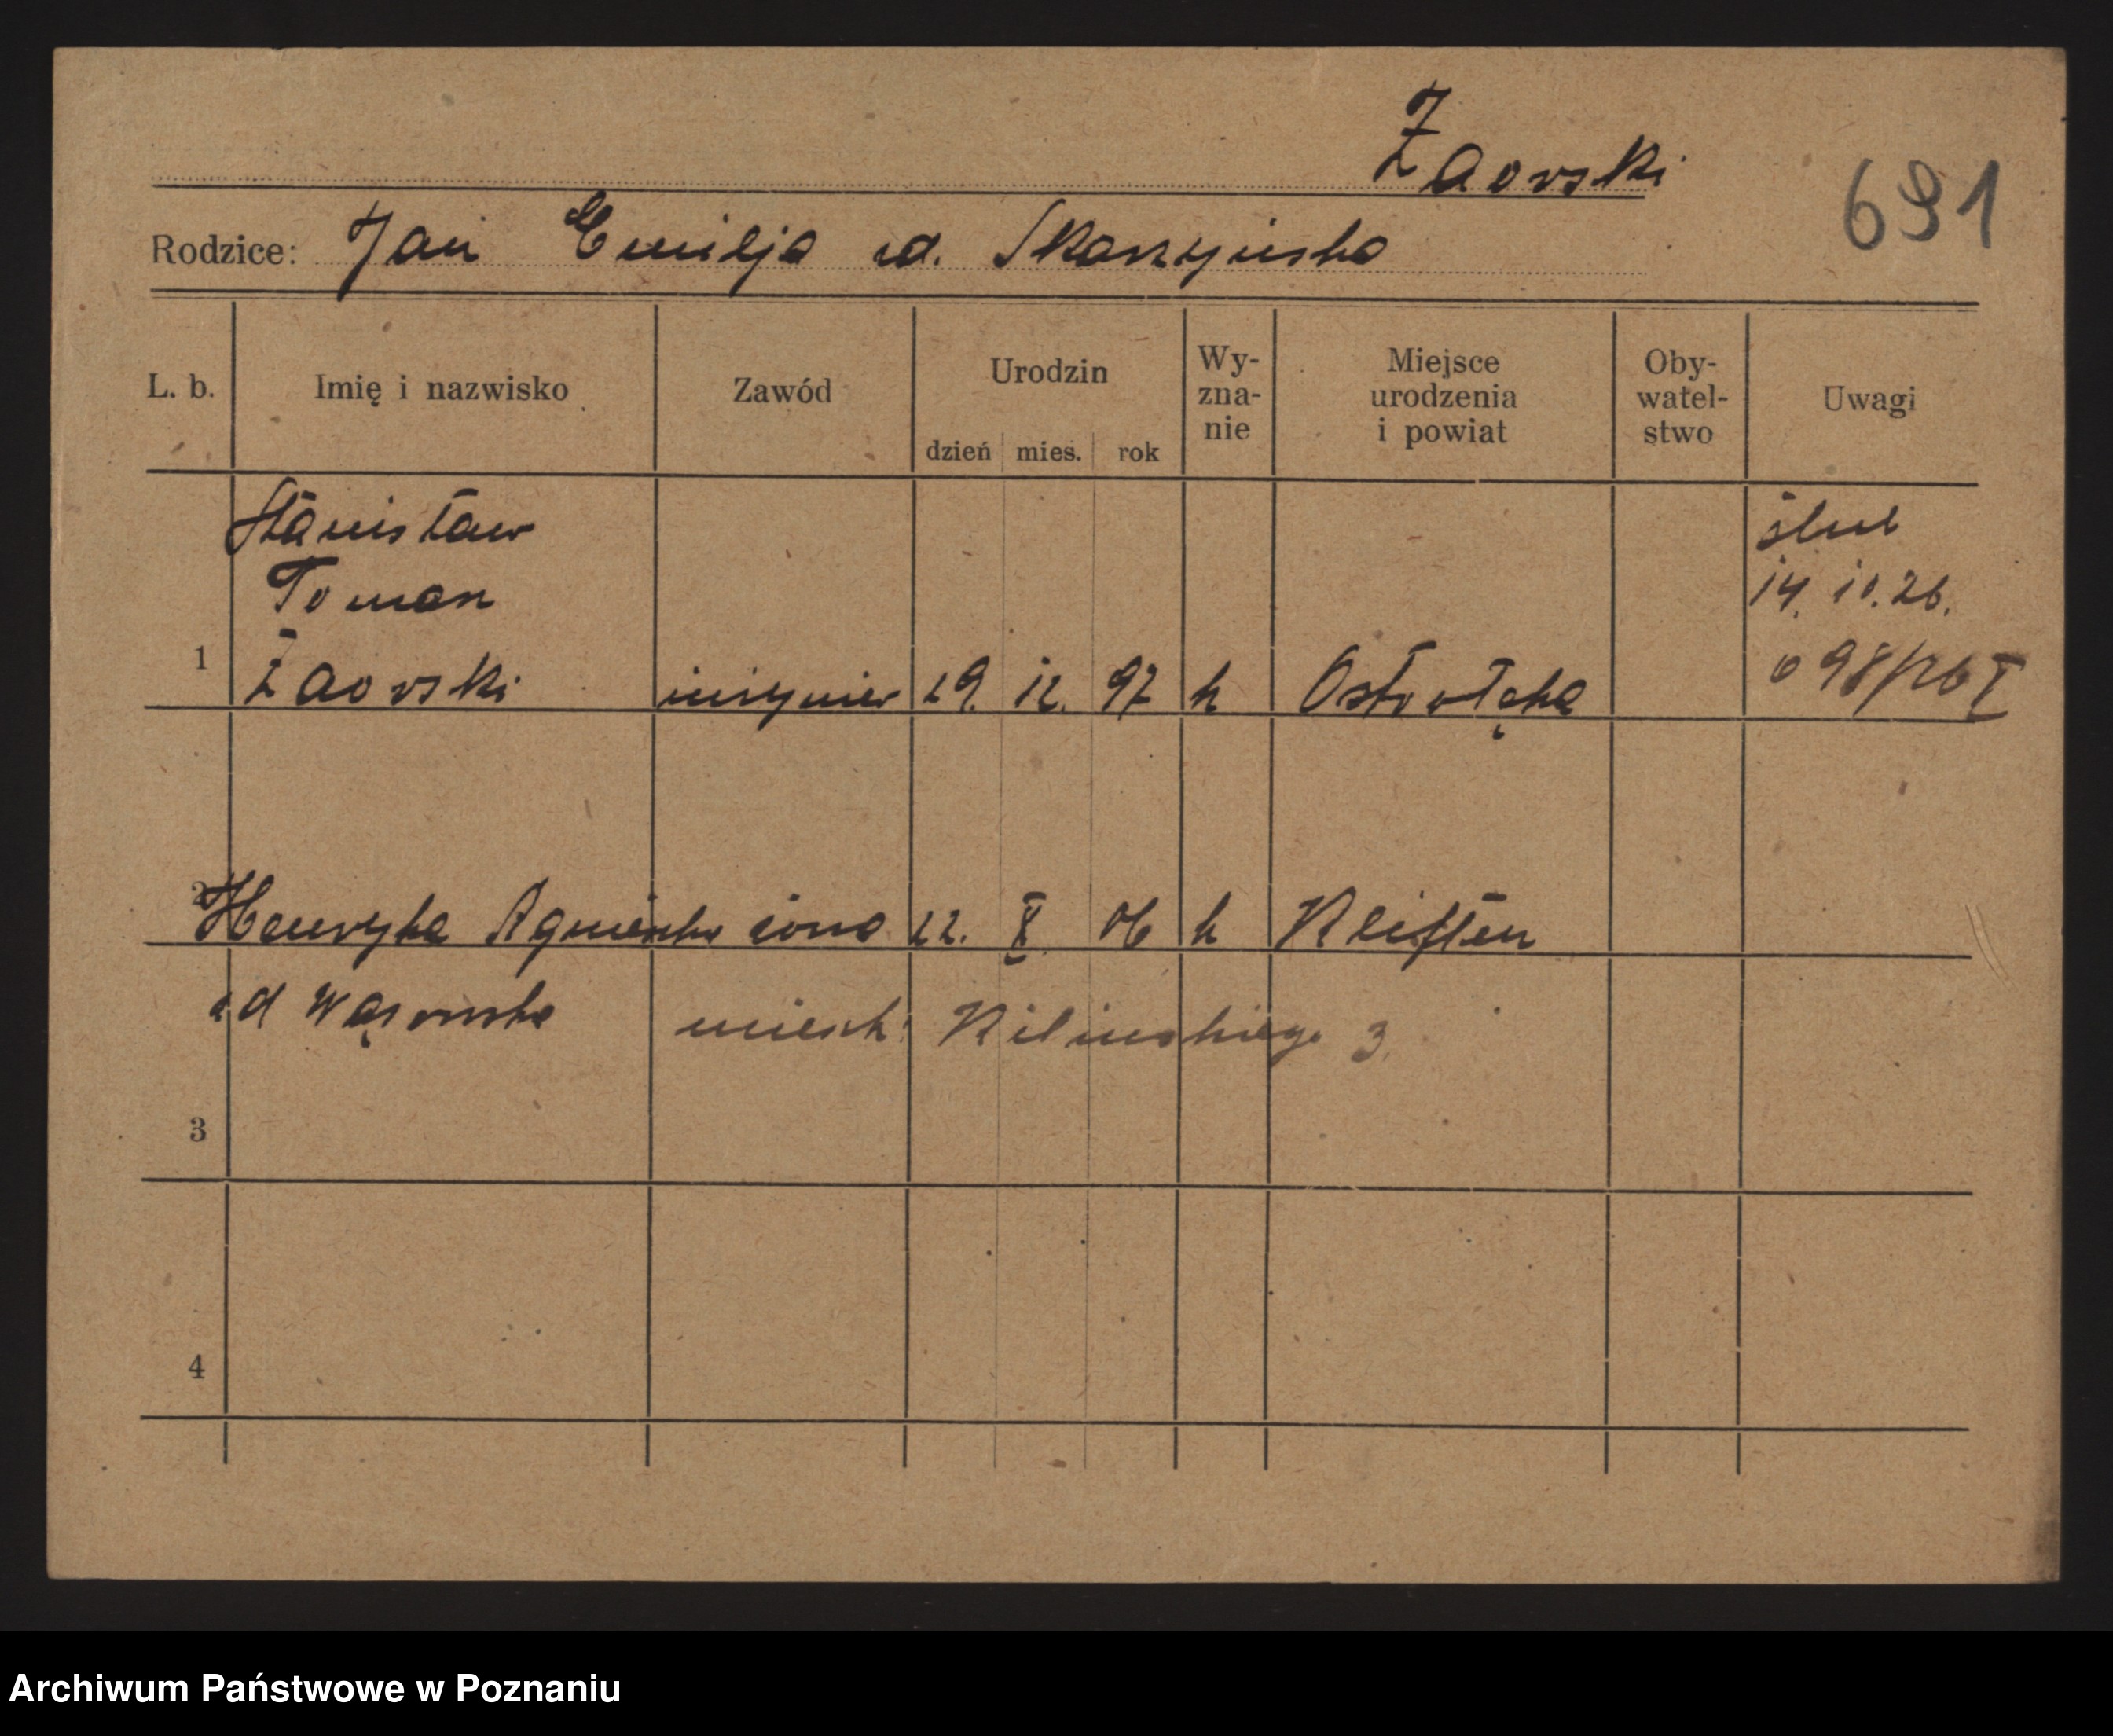 Żaorski
691
Rodzice: Jan Emilja ud. Skarzyńska
L. b. Imię i nazwisko Zawód Urodzin dzień mies. rok Wy-zna-nie Miejsce urodzenia i powiat Oby-watel-stwo Uwagi
Stanisław ślub
Tomasz 14. 10. 26.
1 Żaorski inżynier 29. 12. 97 k Ostrołęka 698/26 I
2 Henryka Agnieszka żona 22. X. 06 k
ud Wąsowska mieszk. Kilińskiego 3
3
4
Archiwum Państwowe w Poznaniu